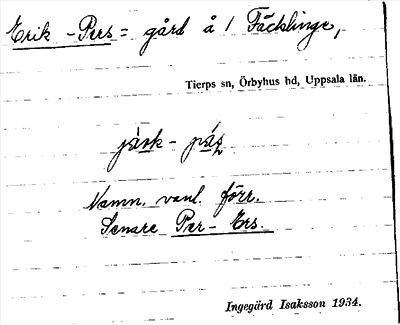 Erik-Pers = gård å 1 Fäcklinge,
Tierps sn, Örbyhus hd, Uppsala län.
Namn. vanl. förr.
Senare Per-Ers.
Ingegärd Isaksson 1934.